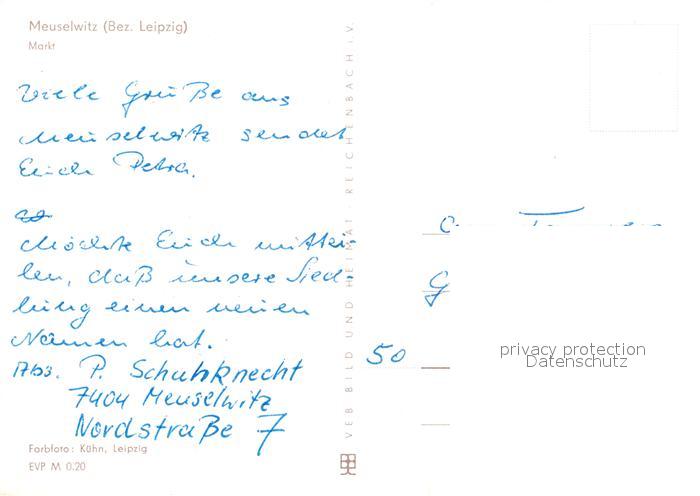 Meuselwitz (Bez. Leipzig)
Markt
Viele Grüße aus
Meuselwitz sendet
Euch Petra.
Möchte Euch mittei-
len, daß unsere Sied-
lung einen neuen
Namen hat.
Abs. P. Schuhknecht
7404 Meuselwitz
Nordstraße 7
Farbfoto: Kühn, Leipzig
EVP M 0.20
VEB BILD UND HEIMAT REICHENBACH i.V.
G
50
privacy protection
Datenschutz